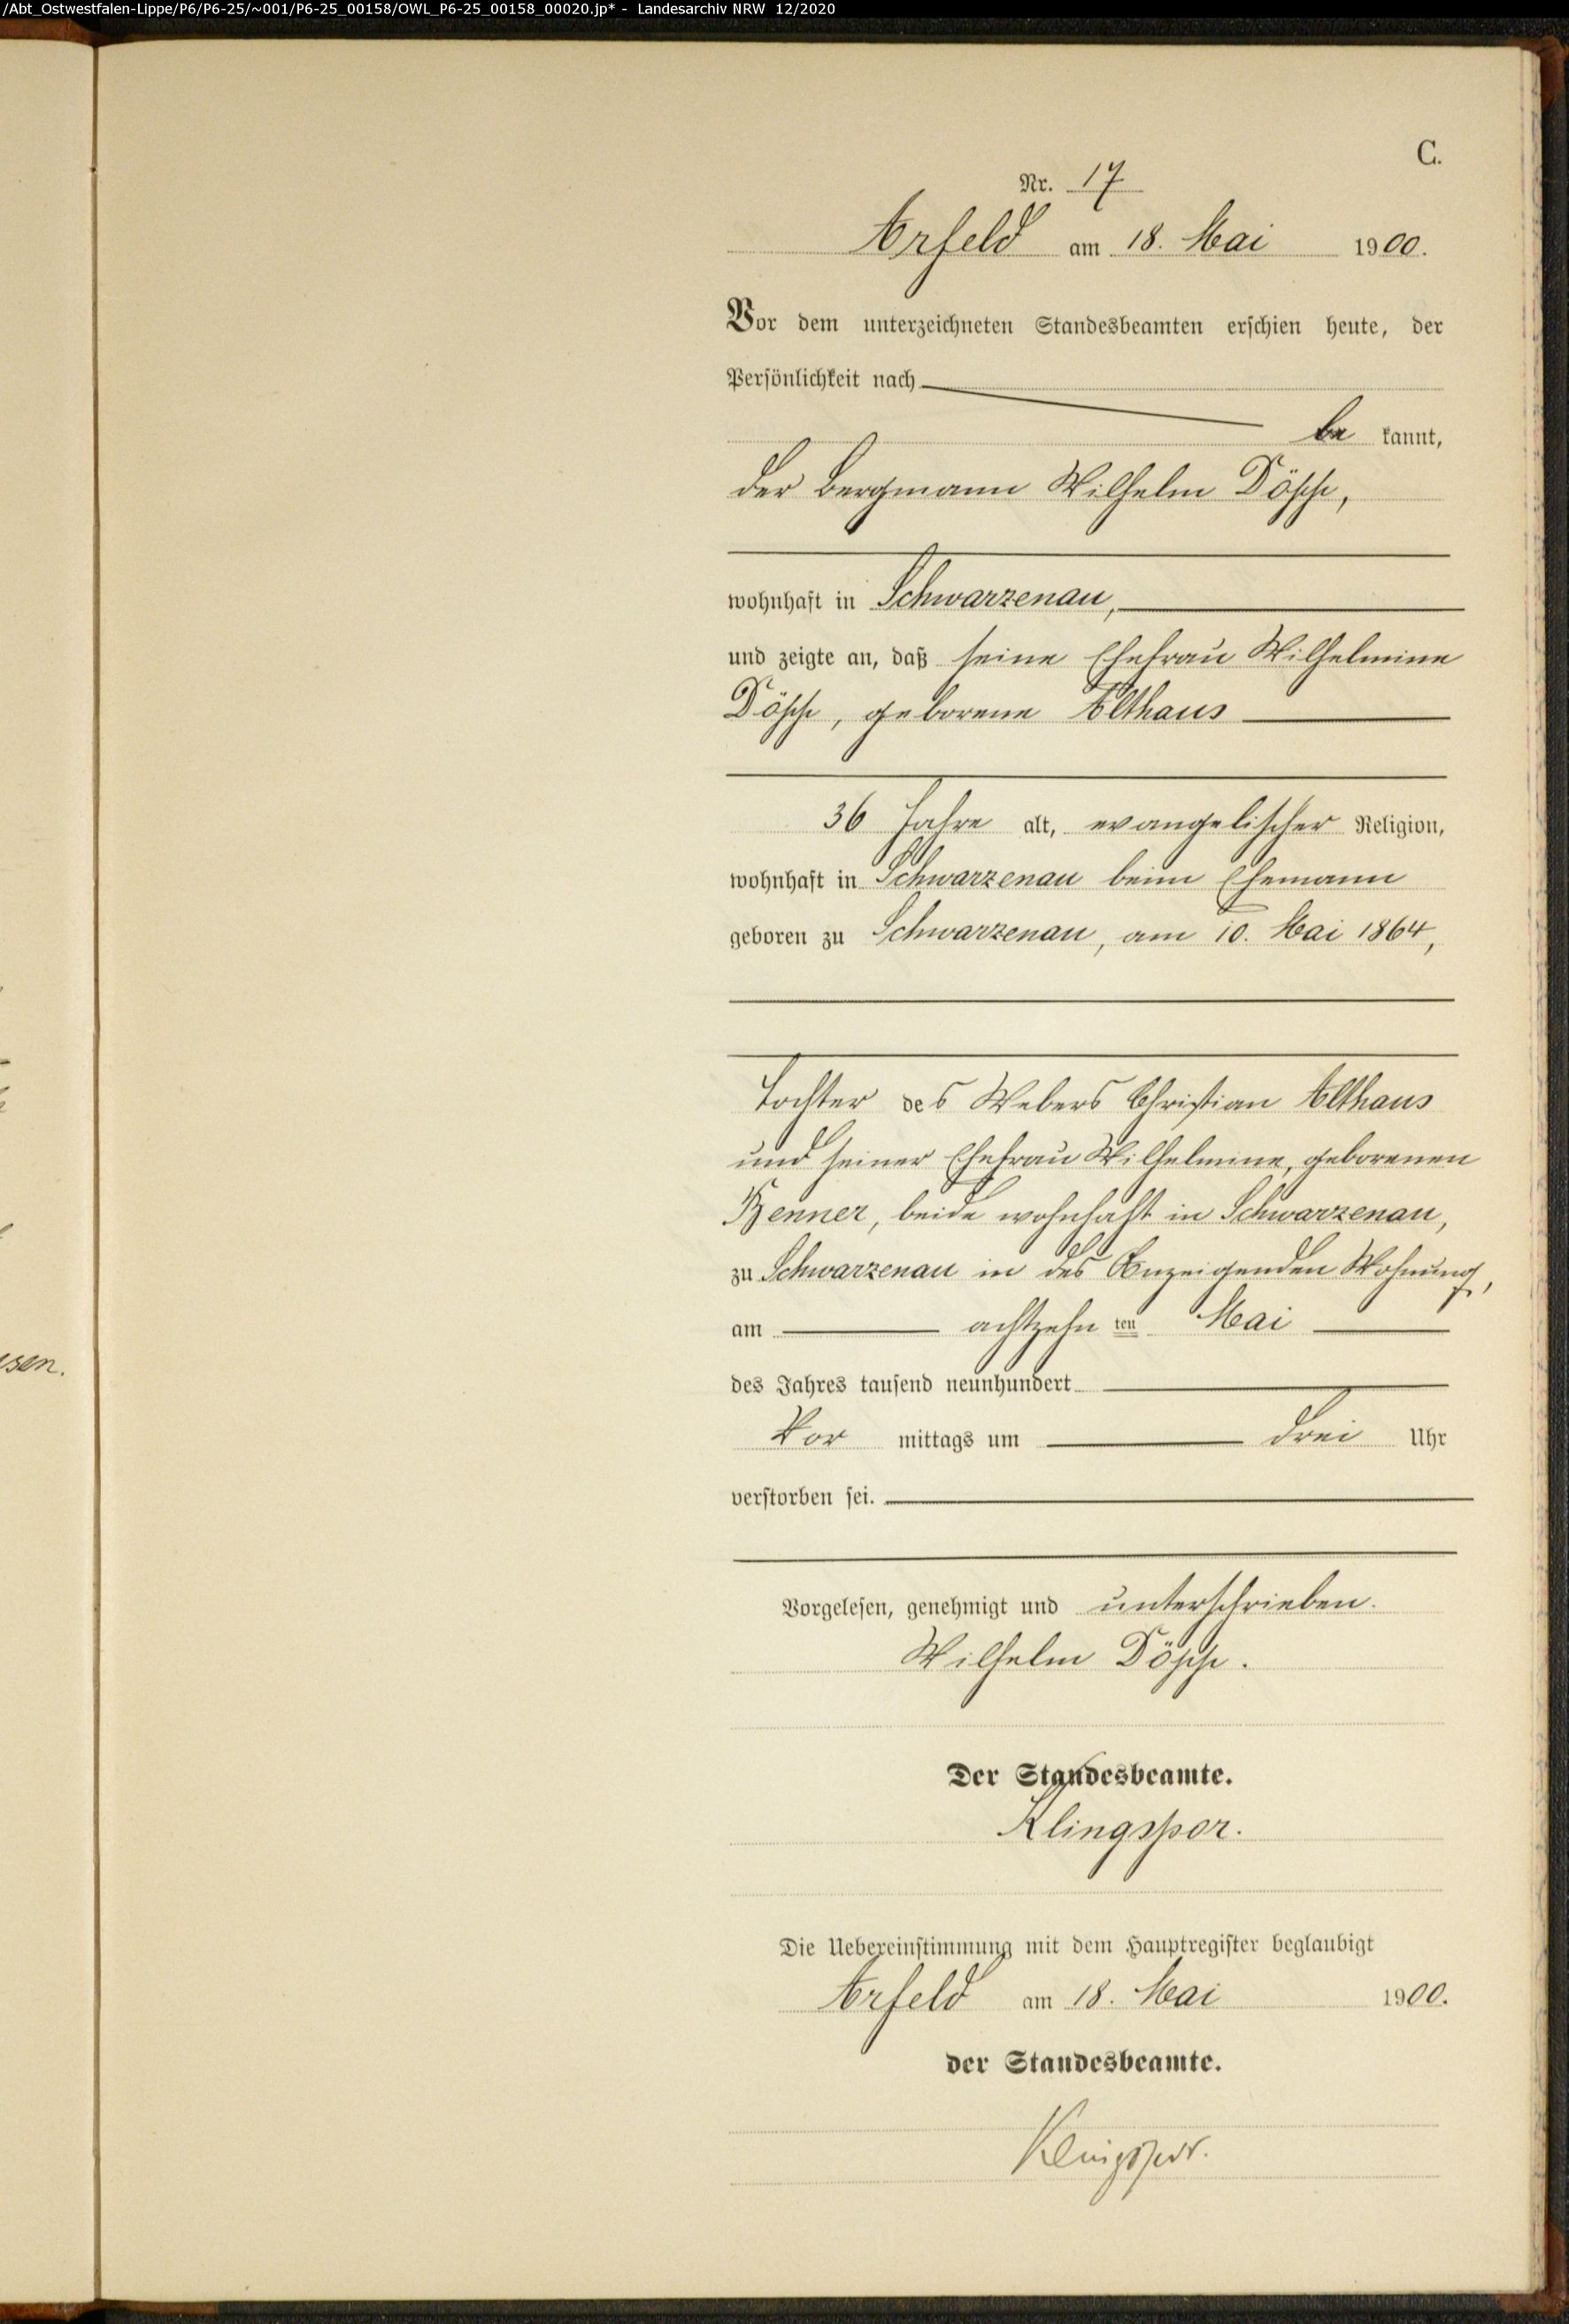 /Abt_Ostwestfalen-Lippe/P6/P6-25/~001/P6-25_00158/OWL_P6-25_00158_00020.jp* - Landesarchiv NRW 12/2020
C.
Nr. 17
Arfeld am 18. Mai 1900.
Vor dem unterzeichneten Standesbeamten erschien heute, der
Persönlichkeit nach
be kannt,
der Bergmann Wilhelm Dösche,
wohnhaft in Schwarzenau,
und zeigte an, daß seine Ehefrau Wilhelmine
Dösche, geborene Althaus
36 Jahre alt, evangelischer Religion,
wohnhaft in Schwarzenau beim Ehemann
geboren zu Schwarzenau, am 10. Mai 1864,
Tochter des Webers Christian Althaus
und seiner Ehefrau Wilhelmine, geborenen
Benner, beide wohnhaft in Schwarzenau,
zu Schwarzenau in des Anzeigenden Wohnung,
am achtzehn ten Mai
des Jahres tausend neunhundert
Vor mittags um drei Uhr
sen.
verstorben sei.
Vorgelesen, genehmigt und unterschrieben.
Wilhelm Dösche.
Der Standesbeamte.
Klingspor.
Die Uebereinstimmung mit dem Hauptregister beglaubigt
Arfeld am 18. Mai 1900.
der Standesbeamte.
Klingspor.